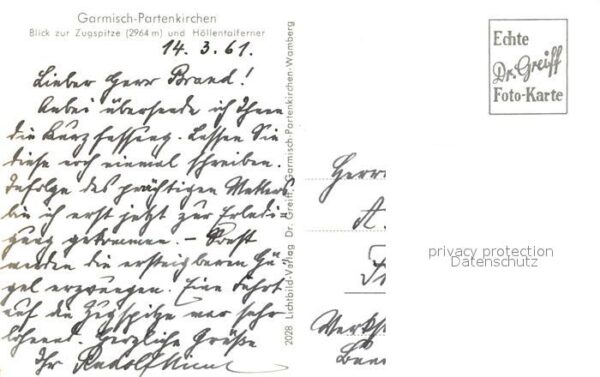 Garmisch-Partenkirchen
Blick zur Zugspitze (2964 m) und Höllentalferner
14. 3. 61.
Lieber Herr Brand!
Anbei übersende ich Ihnen
die Kurzfassung. Lassen Sie
diese noch einmal schreiben.
Infolge des prächtigen Wetters
bin ich erst jetzt zur Erledi-
gung gekommen. – Sonst
werden die ersteigbaren Hü-
gel erzwungen. Eine Fahrt
auf die Zugspitze war sehr
lohnend. Herzliche Grüße
Ihr Rudolf
2028 Lichtbild-Verlag Dr. Greiff, Garmisch-Partenkirchen-Wamberg
Echte
Dr. Greiff
Foto-Karte
Herrn
A.
privacy protection
Datenschutz